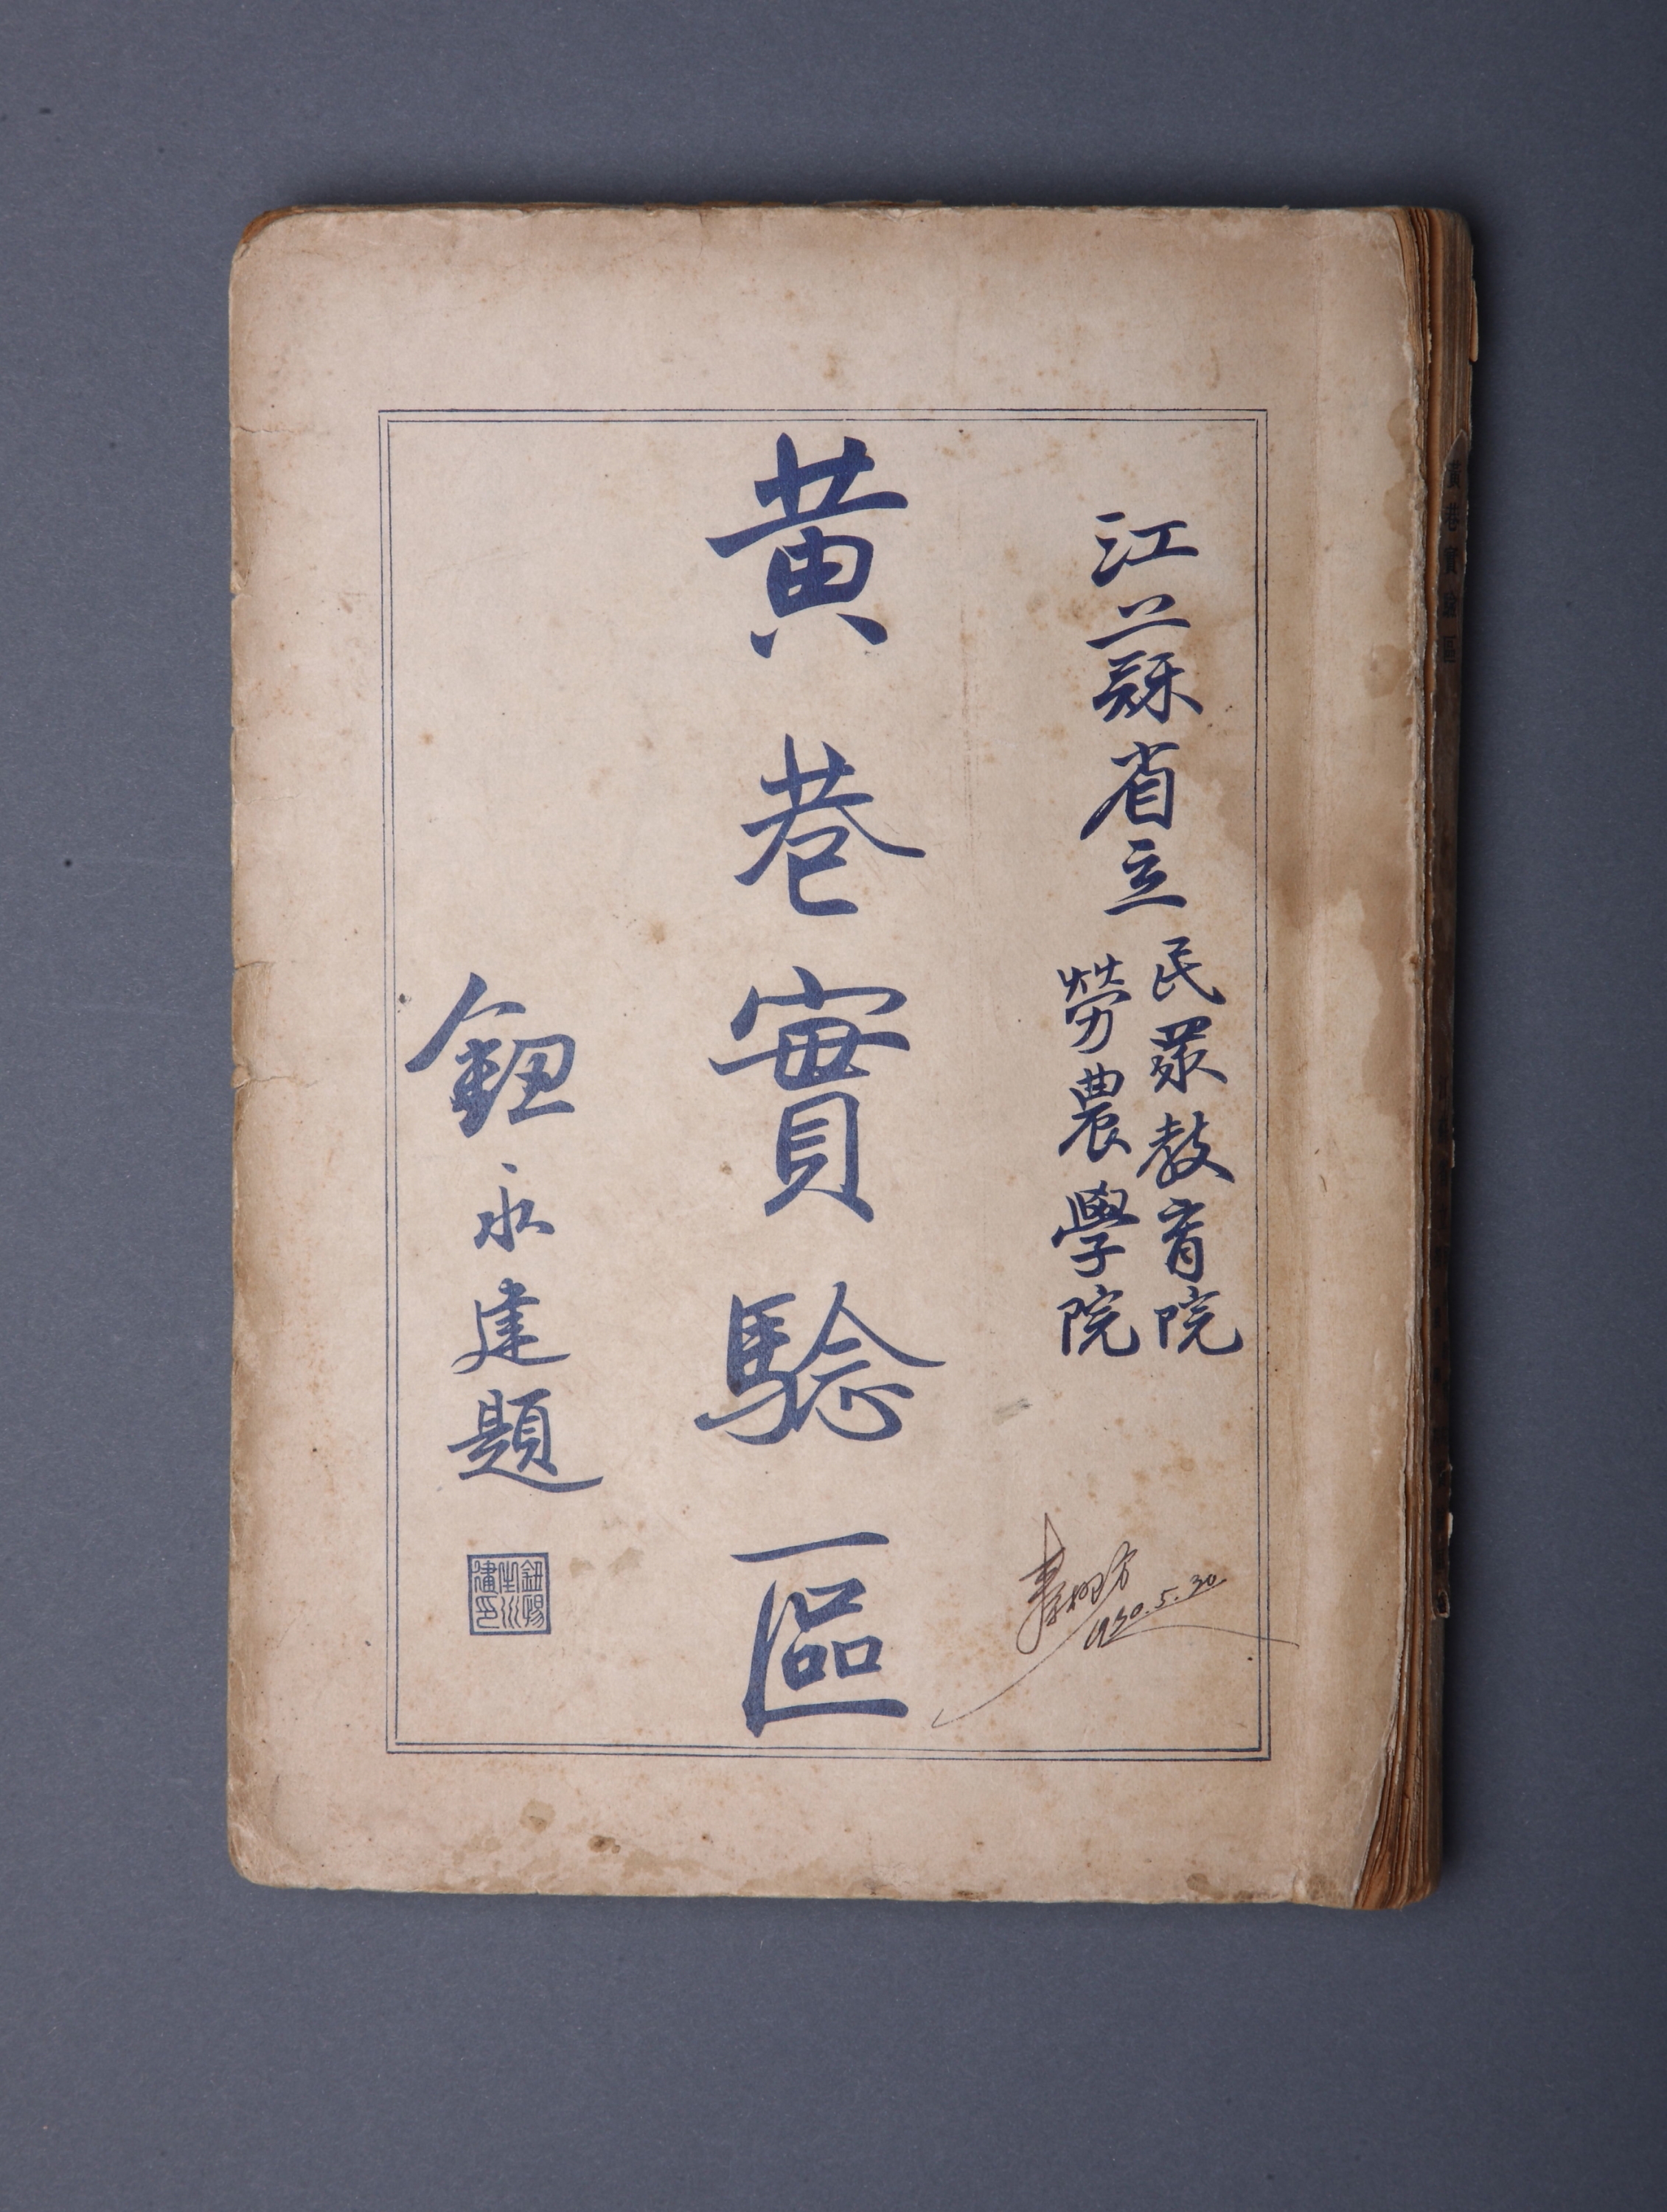 江蘇省立
民眾教育院
勞農學院
黃巷實驗區
鈕永建題
1930.5.30
黃巷實驗區